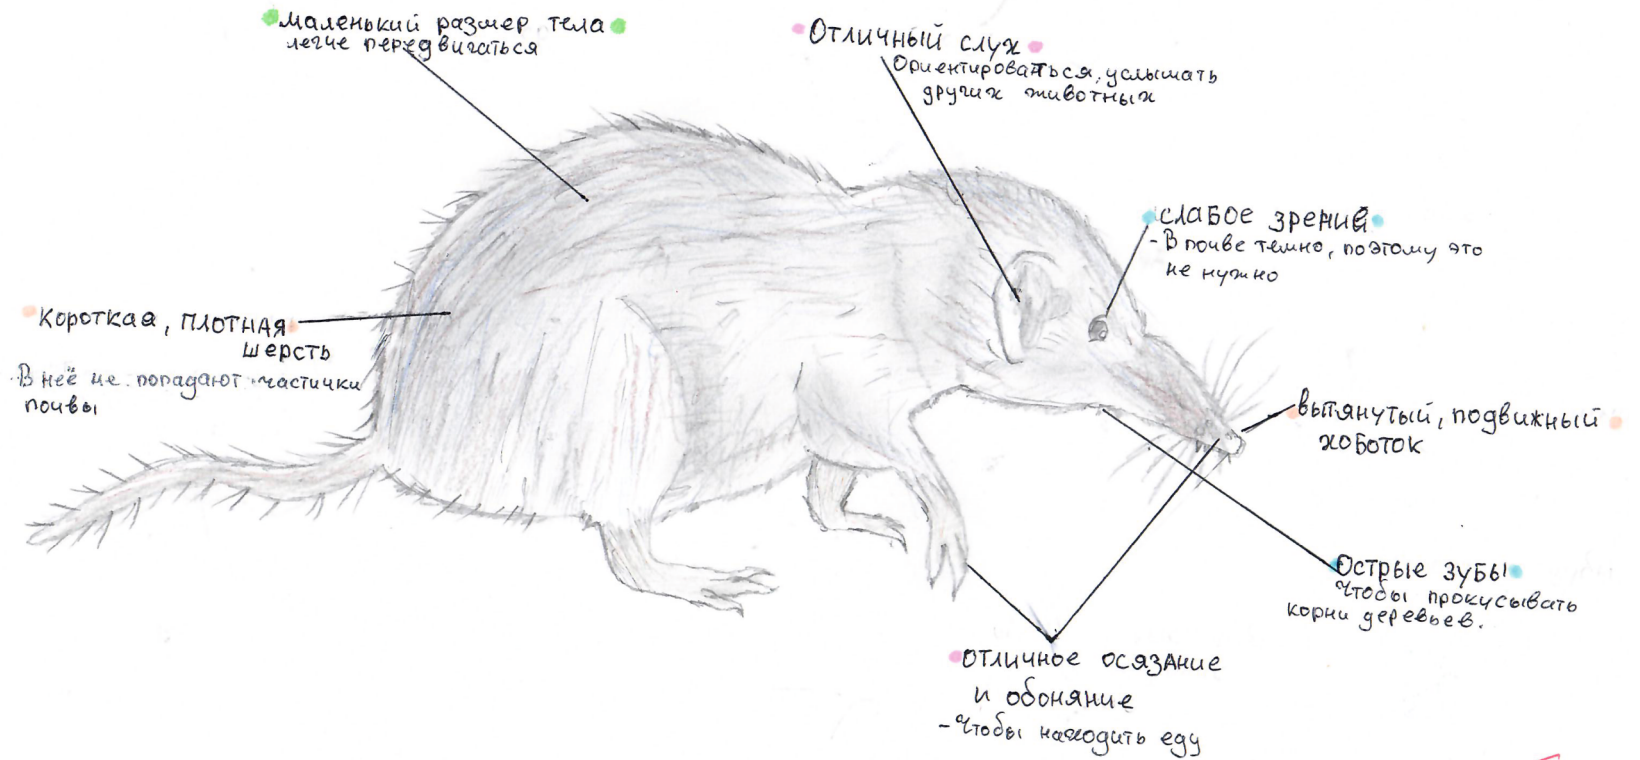 маленький размер тела
легче передвигаться
Отличный слух
Ориентироваться, услышать
других животных
слабое зрение
- В почве темно, поэтому это
не нужно
короткая, плотная
шерсть
В неё не попадают частички
почвы
вытянутый, подвижный
хоботок
Острые зубы
Чтобы прокусывать
корни деревьев.
Отличное осязание
и обоняние
- Чтобы находить еду